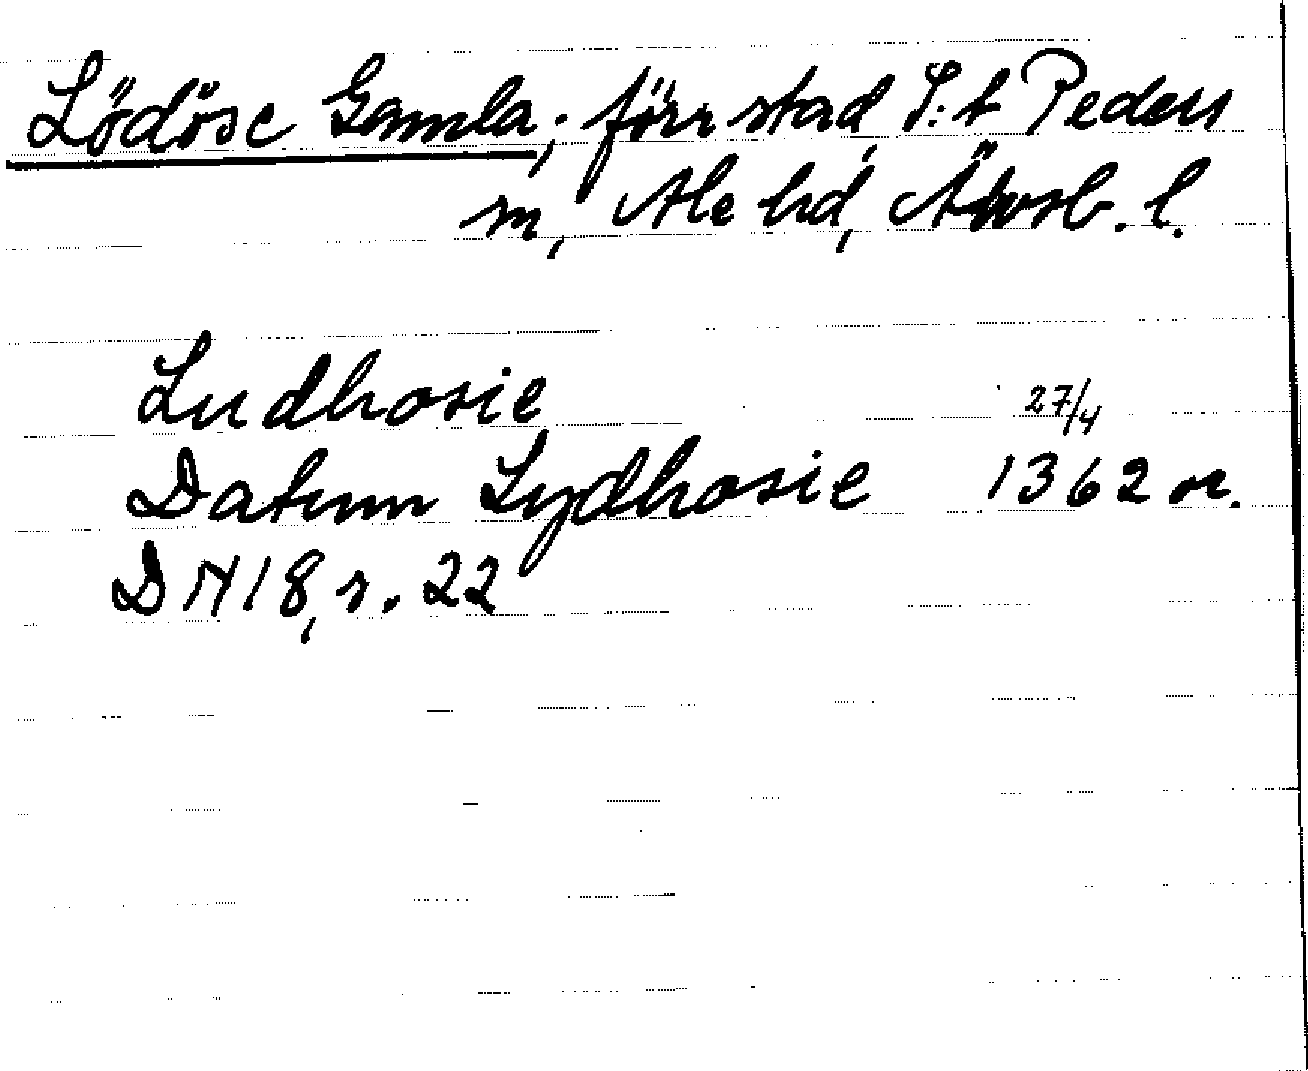 Lödöse Gamla, förr stad, S:t Peders
sn, Ale hd, Älvsb. l.
Ludhosie 27/4
Datum Lydhosie 1362 or.
DN 18, s. 22